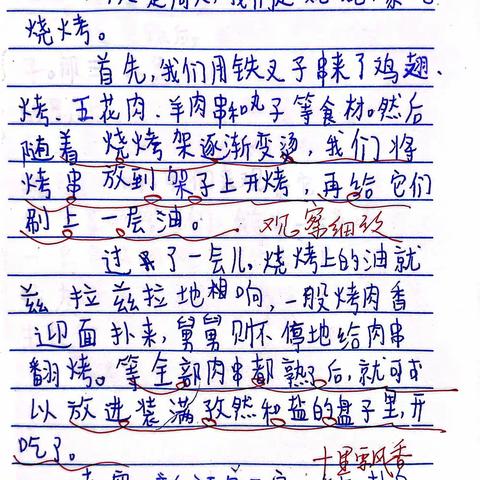 烧烤。
首先，我们用铁叉子串来了鸡翅、
烤、五花肉、羊肉串和丸子等食材。然后
随着烧烤架逐渐变烫，我们将
烤串放到架子上开烤，再给它们
刷上一层油。 观察细致
过了一层儿，烧烤上的油就
兹拉兹拉地相响，一股烤肉香
迎面扑来，舅舅则不停地给肉串
翻烤。等全部肉串都熟了后，就可
以放进装满孜然和盐的盘子里，开
吃了。 十里飘香